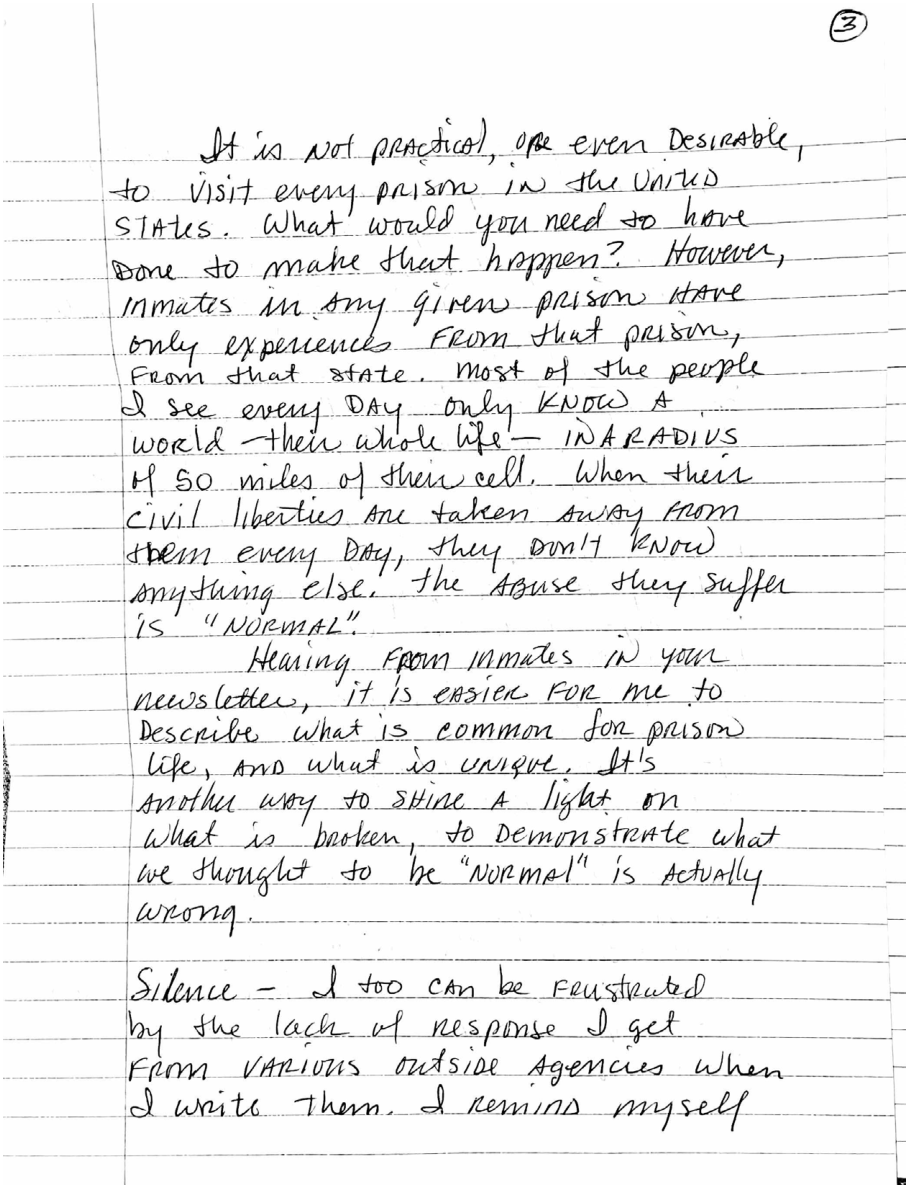 3
It is not practical, or even desirable,
to visit every prison in the United
States. What would you need to have
done to make that happen? However,
inmates in any given prison have
only experiences from that prison,
from that state. Most of the people
I see every day only know a
world – their whole life – in a radius
of 50 miles of their cell. When their
civil liberties are taken away from
them every day, they don't know
anything else. The abuse they suffer
is "normal".
Hearing from inmates in your
newsletter, it is easier for me to
describe what is common for prison
life, and what is unique. It's
another way to shine a light on
what is broken, to demonstrate what
we thought to be "normal" is actually
wrong.
Silence – I too can be frustrated
by the lack of response I get
from various outside agencies when
I write them. I remind myself